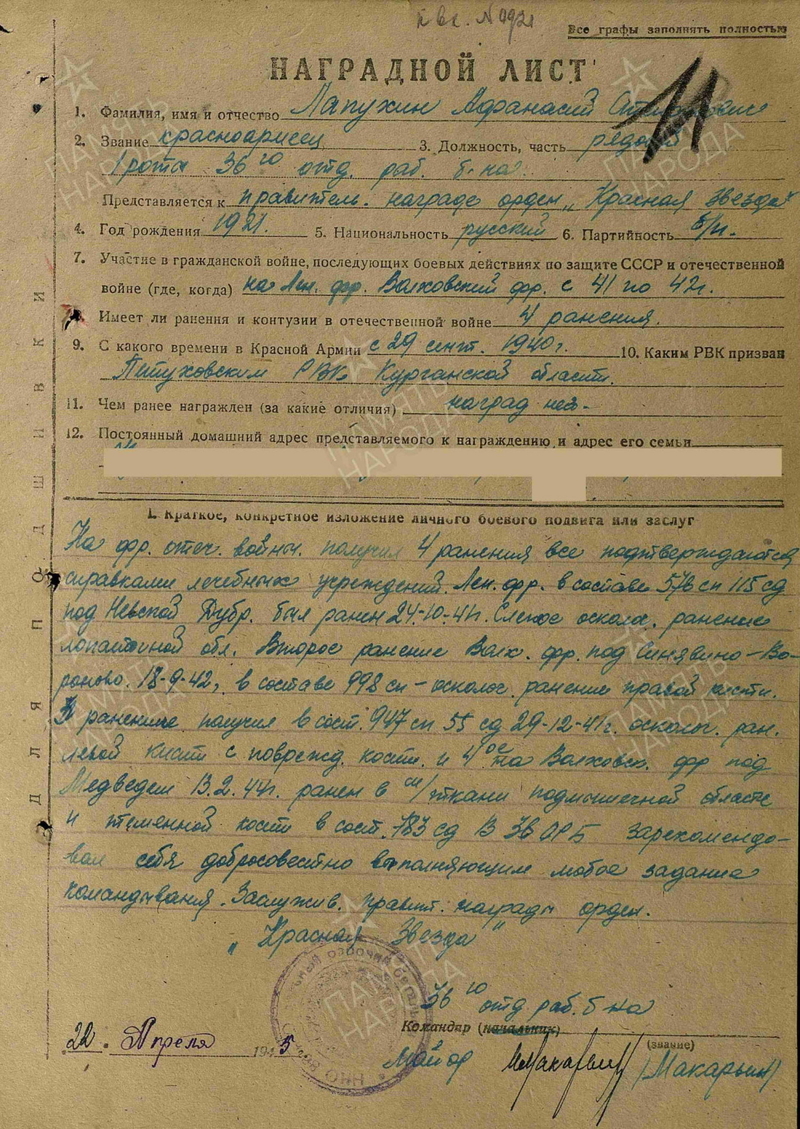 Все графы заполнять полностью
НАГРАДНОЙ ЛИСТ
11
1. Фамилия, имя и отчество Лапухин Афанасий
2. Звание красноармеец 3. Должность, часть рядовой
1 рота 36го отд. раб. б-на
Представляется к правитель. награде орден „Красная звезда"
4. Год рождения 1921. 5. Национальность русский 6. Партийность б/п.
7. Участие в гражданской войне, последующих боевых действиях по защите СССР и отечественной
войне (где, когда) на Лен. фр. Волховский фр. с 41 по 42г.
Имеет ли ранения и контузии в отечественной войне 4 ранения.
9. С какого времени в Красной Армии с 29 сент. 1940г. 10. Каким РВК призван
Питуховским РВК Курганской области.
11. Чем ранее награжден (за какие отличия) наград нет.
12. Постоянный домашний адрес представляемого к награждению и адрес его семьи
I. Краткое, конкретное изложение личного боевого подвига или заслуг
На фр. отеч. войны. получил 4 ранения все подтверждаются
справками лечебных учреждений. Лен. фр. в составе 576 сп 115 сд
под Невской Дубр. был ранен 24-10-41г. Слепое осколоч. ранение
лопаточной обл. Второе ранение Волх. фр. под Синявино-Во-
роново. 18-9-42г в составе 998 сп - осколоч. ранение правой кисти.
3 ранение получил в сост. 947 сп 55 сд 29-12-41г. осколоч. ран.
левой кисти с поврежд. кости. и 4ое на Волховск. фр под
Медведем 13.2.44г. ранен в м/ткани подмышечной области
и теменной кости в сост. 783 сд В 36 ОРБ зарекомендо-
вал себя добросовестно выполняющим любое задание
командывания. Заслужив. правит. награды орден.
„Красная Звезда"
36го отд раб. б-на
Командир (начальник)
(звание)
22. Апреля 1945.
Майор (Макарьин)
ДЛЯ ПОДШИВКИ
ПАМЯТЬ НАРОДА